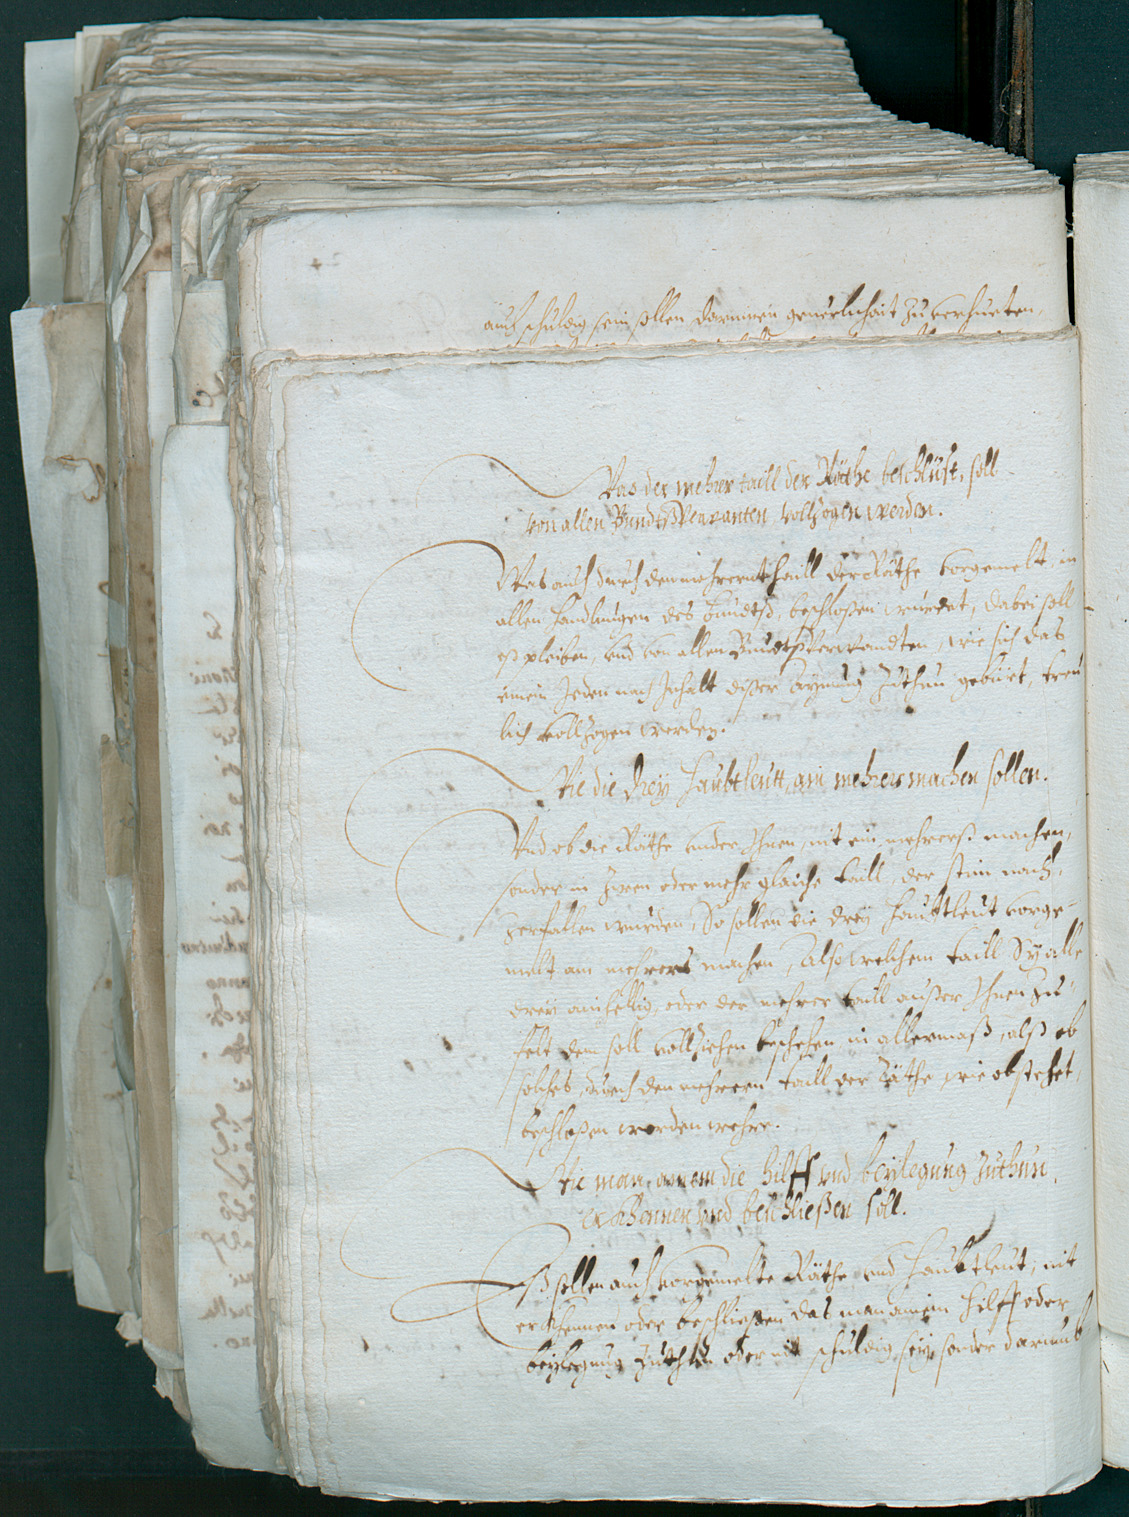 auch schuldig sein sollen darinnen geuerlichait zu verhueten,
Was der mehrer taill der Räthe beschlüst, soll
von allen Bundtßverwanten volzogen werden.
Was auch durch den mehrern thaill der Räthe vorgemelt, in
allen handlungen des Bundtß, beschloßen wurdet, dabei soll
eß pleiben, und von allen Bundtßverwandten, wie sich das
einem Jeden nach Inhalt dißer Aynung zuthun gebürt, treu
lich volltzogen werden.
Wie die drey Haubtleütt, ain mehrers machen sollen.
Und ob die Räthe under Ihnen, nit ein mehrerß machen,
sonder in zwen oder mehr gleiche taill, der stim nach,
zerfallen wurden, So sollen die drey Haubtleut vorge-
melt ain mehrers machen, Also welchem taill Sy alle
drey ainhellig, oder der mehrer taill außer Ihnen zu-
felt dem soll volltziehen beschehen in allermaß, alß ob
solches, durch den mehrern taill der Räthe wie obstehet,
beschloßen worden wehre.
Wie man, ainem die hilff und beylegung zuthun,
erkhennen und beschließen soll.
Eß sollen auch vorgemelte Räthe und Haubtleut, nit
erkhennen oder beschließen das man ainem hilff oder
beylegung zuthun oder nit schuldig sey, sonder darumb